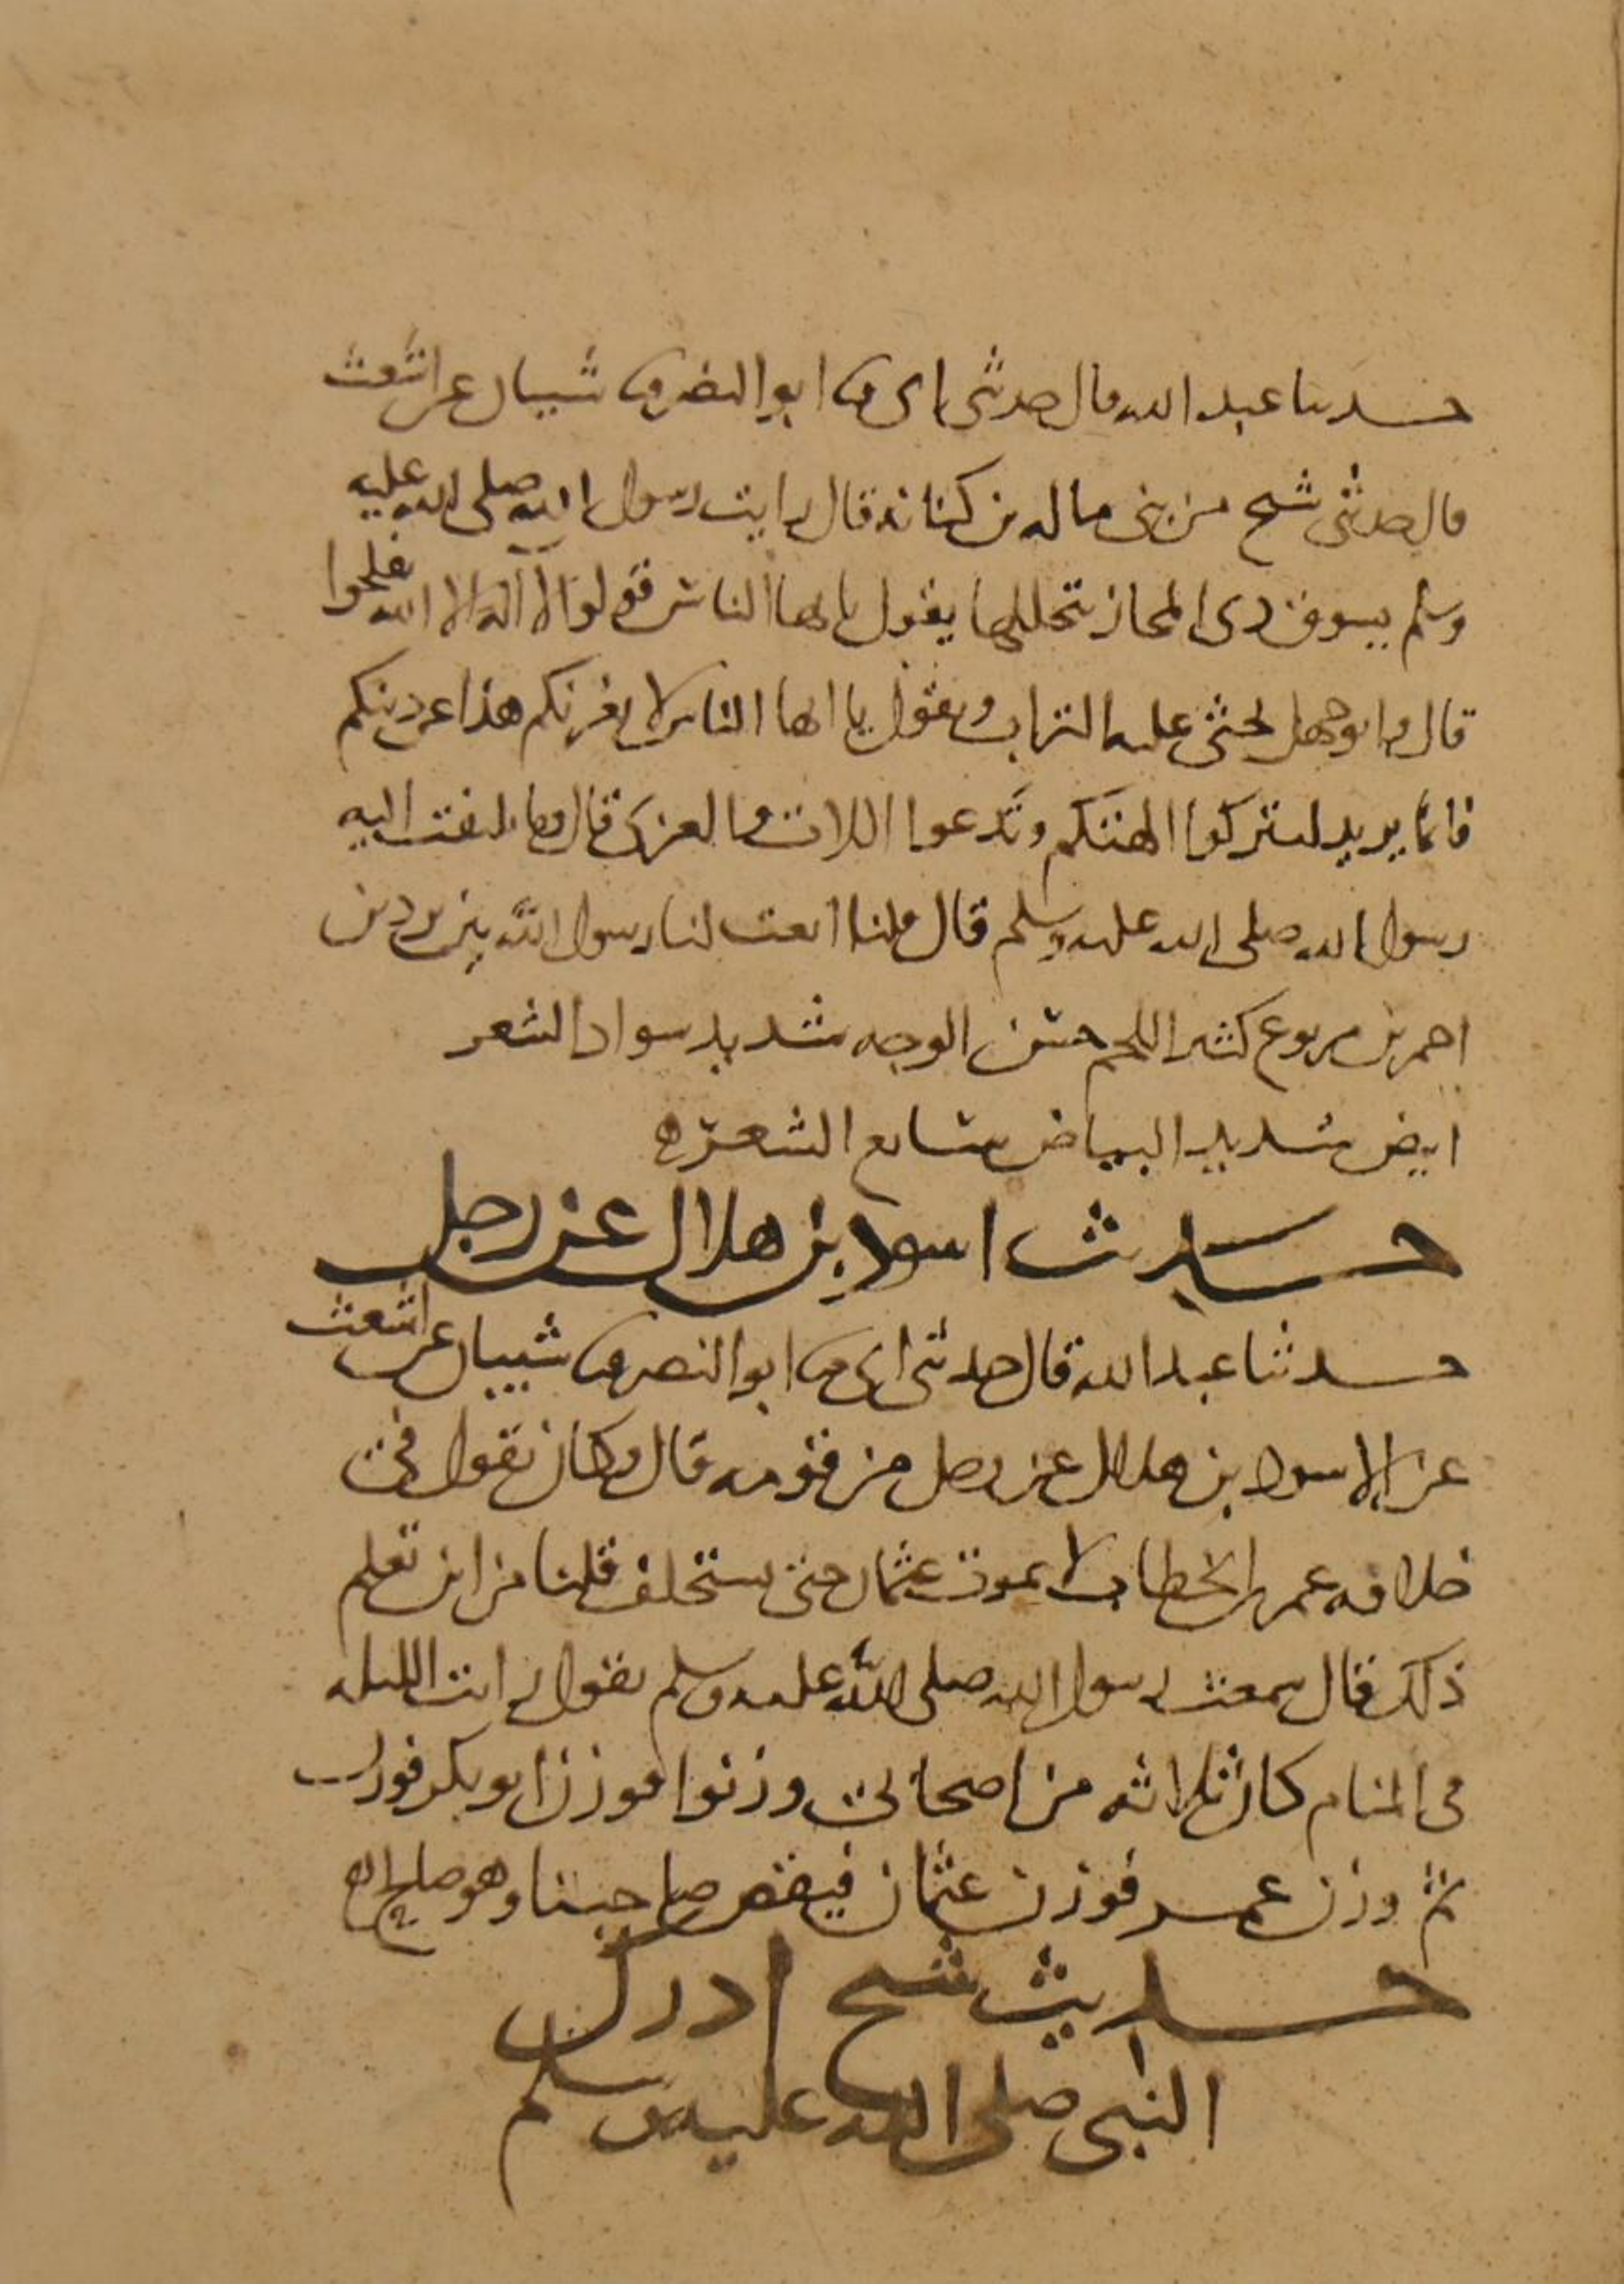 حدثنا عبد الله قال حدثني ابي ثنا ابو النضر ثنا شيبان عن اشعث
قال حدثني شيخ من بني مالك بن كنانة قال رايت رسول الله صلى الله عليه
وسلم بسوق ذي المجاز يتخللها يقول يا ايها الناس قولوا لا اله الا الله تفلحوا
قال وابو جهل يحثي عليه التراب ويقول يا ايها الناس لا يغرنكم هذا عن دينكم
فانما يريد لتتركوا الهتكم وتدعوا اللات والعزى قال وما يلتفت اليه
رسول الله صلى الله عليه وسلم قال قلنا انعت لنا رسول الله بين بردين
احمرين مربوع كثير اللحم حسن الوجه شديد سواد الشعر
ابيض شديد البياض سابغ الشعر
حديث اسود بن هلال عن رجل
حدثنا عبد الله قال حدثني ابي ثنا ابو النضر ثنا شيبان عن اشعث
عن الاسود بن هلال عن رجل من قومه قال كان يقول في
خلافه عمر بن الخطاب لا يموت عثمان حتى يستخلف قلنا من اين تعلم
ذلك قال سمعت رسول الله صلى الله عليه وسلم يقول رايت الليله
في المنام كان ثلاثه من اصحابي وزنوا فوزن ابو بكر فوزن
ثم وزن عمر فوزن ثم وزن عثمان فنقص صاحبنا وهو صالح
حديث شيخ ادرك
النبي صلى الله عليه وسلم